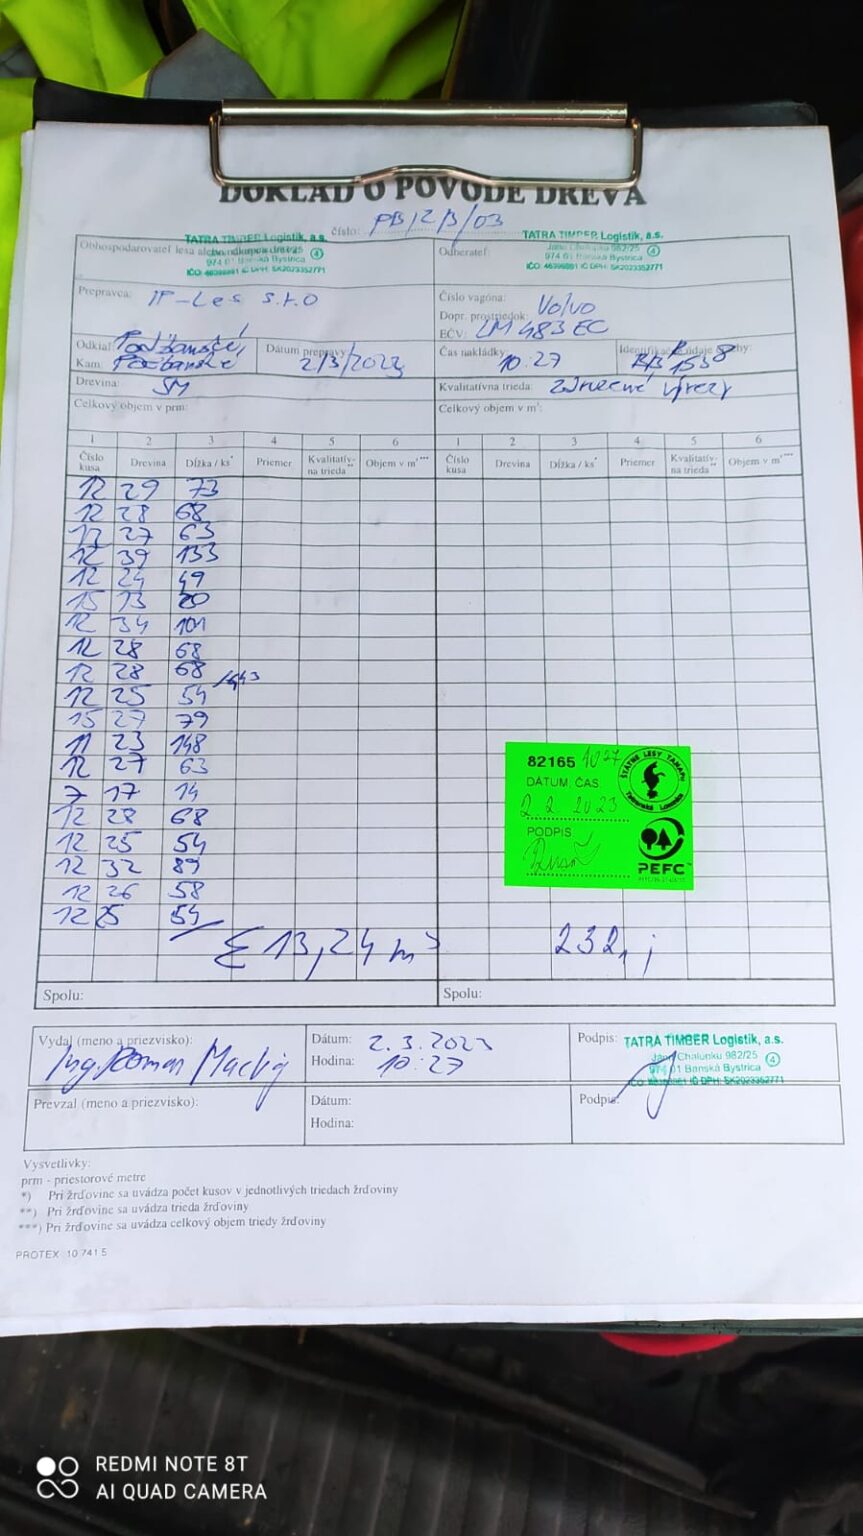 DOKLAD O PÔVODE DREVA
číslo: PB/2/3/03
TATRA TIMBER Logistik, a.s.
Obhospodarovateľ lesa
974 01 Banská Bystrica
IČO: 46399861 IČ DPH: SK2023352771
TATRA TIMBER Logistik, a.s.
Odberateľ:
Jána Chalupku 982/25
974 01 Banská Bystrica
IČO: 46399861 IČ DPH: SK2023352771
Prepravca: IF-Les s.r.o
Číslo vagóna: Volvo
Dopr. prostriedok:
EČV: LM 483 EC
Odkiaľ: Podbanské,
Kam: Podbanské
Dátum prepravy: 2/3/2023
Čas nakládky: 10.27
Identifikačné údaje
Drevina: SM
Kvalitatívna trieda: výrezy
Celkový objem v prm:
Celkový objem v m³:
1 2 3 4 5 6 1 2 3 4 5 6
Číslo kusa Drevina Dĺžka / ks* Priemer Kvalitatív-na trieda** Objem v m³*** Číslo kusa Drevina Dĺžka / ks* Priemer Kvalitatív-na trieda** Objem v m³***
12 29 73
12 28 68
12 27 63
12 39 133
12 24 49
15 13 20
12 34 101
12 28 68
12 28 68
12 25 54
15 27 79
11 23 148
12 27 63
7 17 14
12 28 68
12 25 54
12 32 89
12 26 58
12 25 54
Σ 13,24 m³
82165 1027
DÁTUM, ČAS
2 2 2023
PODPIS
ŠTÁTNE LESY TANAPu
Tatranská Lomnica
PEFC
Spolu:
Spolu:
Vydal (meno a priezvisko):
Ing. Roman
Dátum: 2.3.2023
Hodina: 10:27
Podpis: TATRA TIMBER Logistik, a.s.
Jána Chalupku 982/25
974 01 Banská Bystrica
IČO: 46399861 IČ DPH: SK2023352771
Prevzal (meno a priezvisko):
Dátum:
Hodina:
Podpis:
Vysvetlivky:
prm - priestorové metre
*) Pri žrďovine sa uvádza počet kusov v jednotlivých triedach žrďoviny
**) Pri žrďovine sa uvádza trieda žrďoviny
***) Pri žrďovine sa uvádza celkový objem triedy žrďoviny
PROTEX 10 741 5
REDMI NOTE 8T
AI QUAD CAMERA